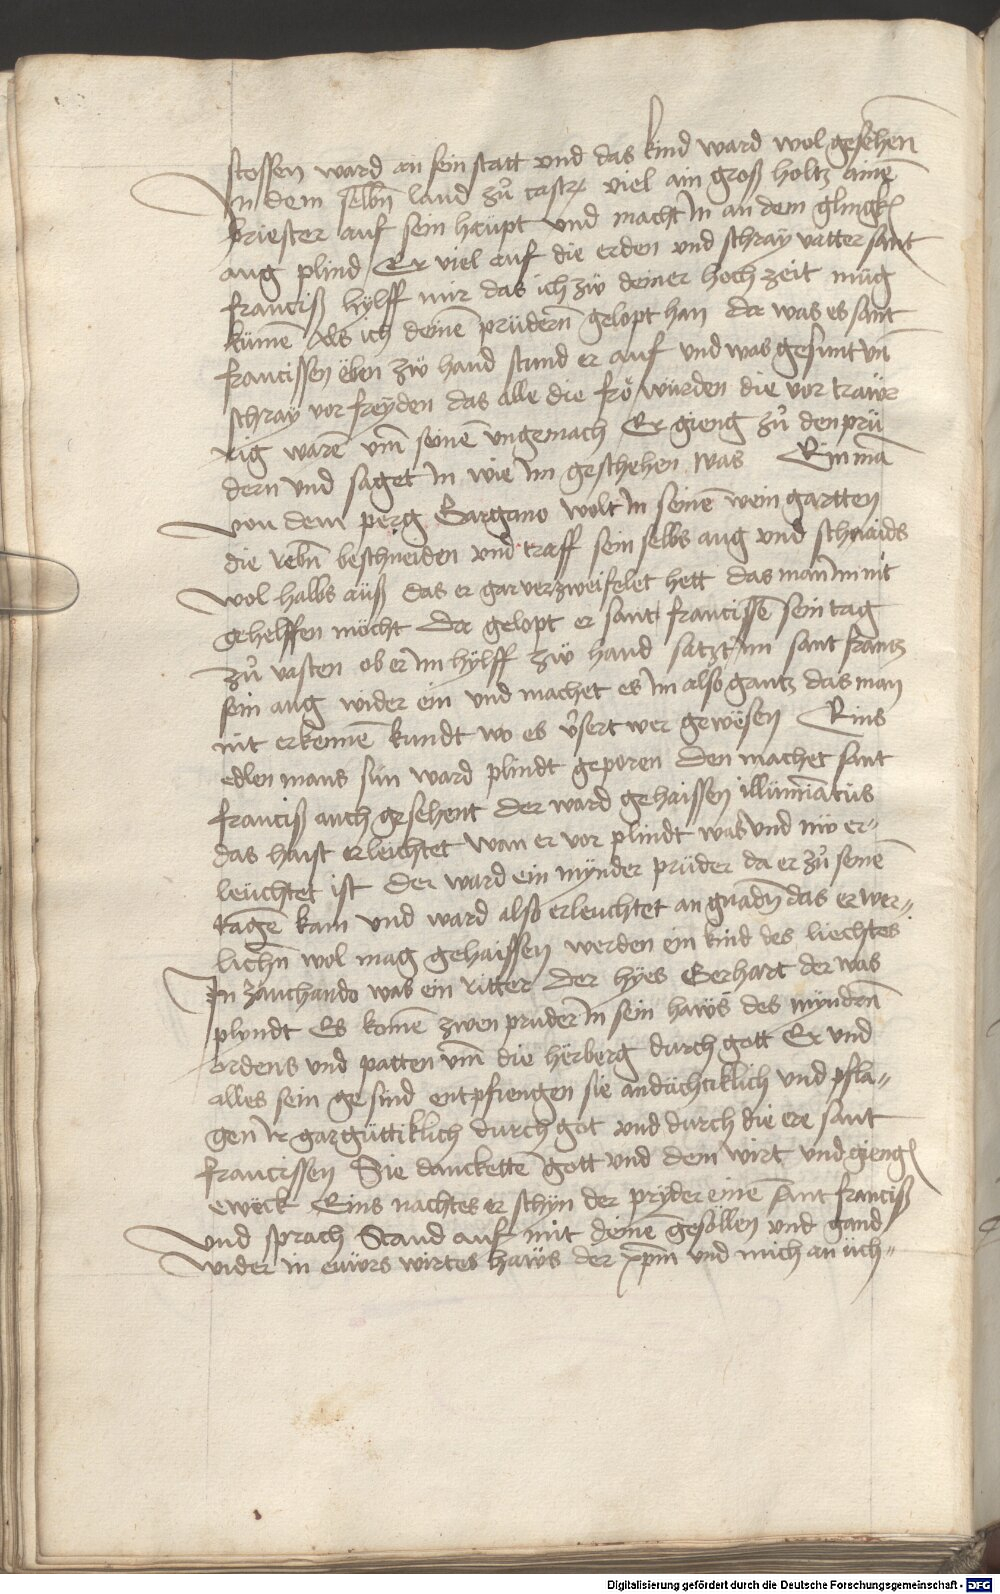 stossen ward an sein statt und das kind ward wol gesehen
In dem selbñ land zů castrꝫ viel ain groß holtz ainē
briester auf sein haüpt und macht ĩn an dem glingkñ
aug plind Er viel auf die erden und schraÿ vatter sant
franciß hÿlff mir das ich zü deiner hoch zeit müg
kümē Als ich deinē prüdernn gelopt han Da was es sant
francissen ëben zü hand stund er auf und was gesunt vñ
schraÿ vor freÿden das alle die frö würden die vor traür
rig warē vm̄ seinē ungemach Er gieng zů den prü
dern und saget ĩn wie ĩm geschehen was Ein mā
von dem perg Gargano wolt ĩn seinē wein gartten
die rebñ beschneiden und traff sein selbs aug und schnaids
wol halbs aüß das er gar verzweifelet hett das man ĩm nit
gehelffen möcht Da gelopt er sant francissē sein tag
zů vasten ob er ĩm hÿlff zü hand satzt ĩm sant frantz
sein aug wider ein und machet es ĩm also gantz das man
nit erkennē kundt wo es v̾sert wer gewësen Eins
edlen mans sün ward plindt geporen den machet sant
franciß auch gesehent der ward gehaissen illüm̃iatus
das haist erleichtet wan er vor plindt was und nü er⸗
leüchtet ist Der ward ein mÿnder prüder da er zů seinē
tagē kam und ward also erleuchtet an gnadñ das er wer⸗
lichñ wol mag gehaissen werden ein kind des liechtes
In zanchando was ein ritter der hÿes Gerhart der was
plyndt Es komē zwen pruder ĩn sein haüs des mÿndñn
ordens und patten vm̄ die hërberg durch gott Er und
alles sein gesind entpfiengen sie andächtiklich und pfla⸗
gen ir gar güttiklich durch got und durch die ere sant
francissen Sie danckettē gott und dem wirt und giengñ
eweck Eins nachtes er schyn der prÿder einē sant franciß
und sprach Stand auf mit deinē gesöllen und gand
wider in eüwrs wirtes haüs der xp̄m und mich an üch⸗
Digitalisierung gefördert durch die Deutsche Forschungsgemeinschaft - DFG